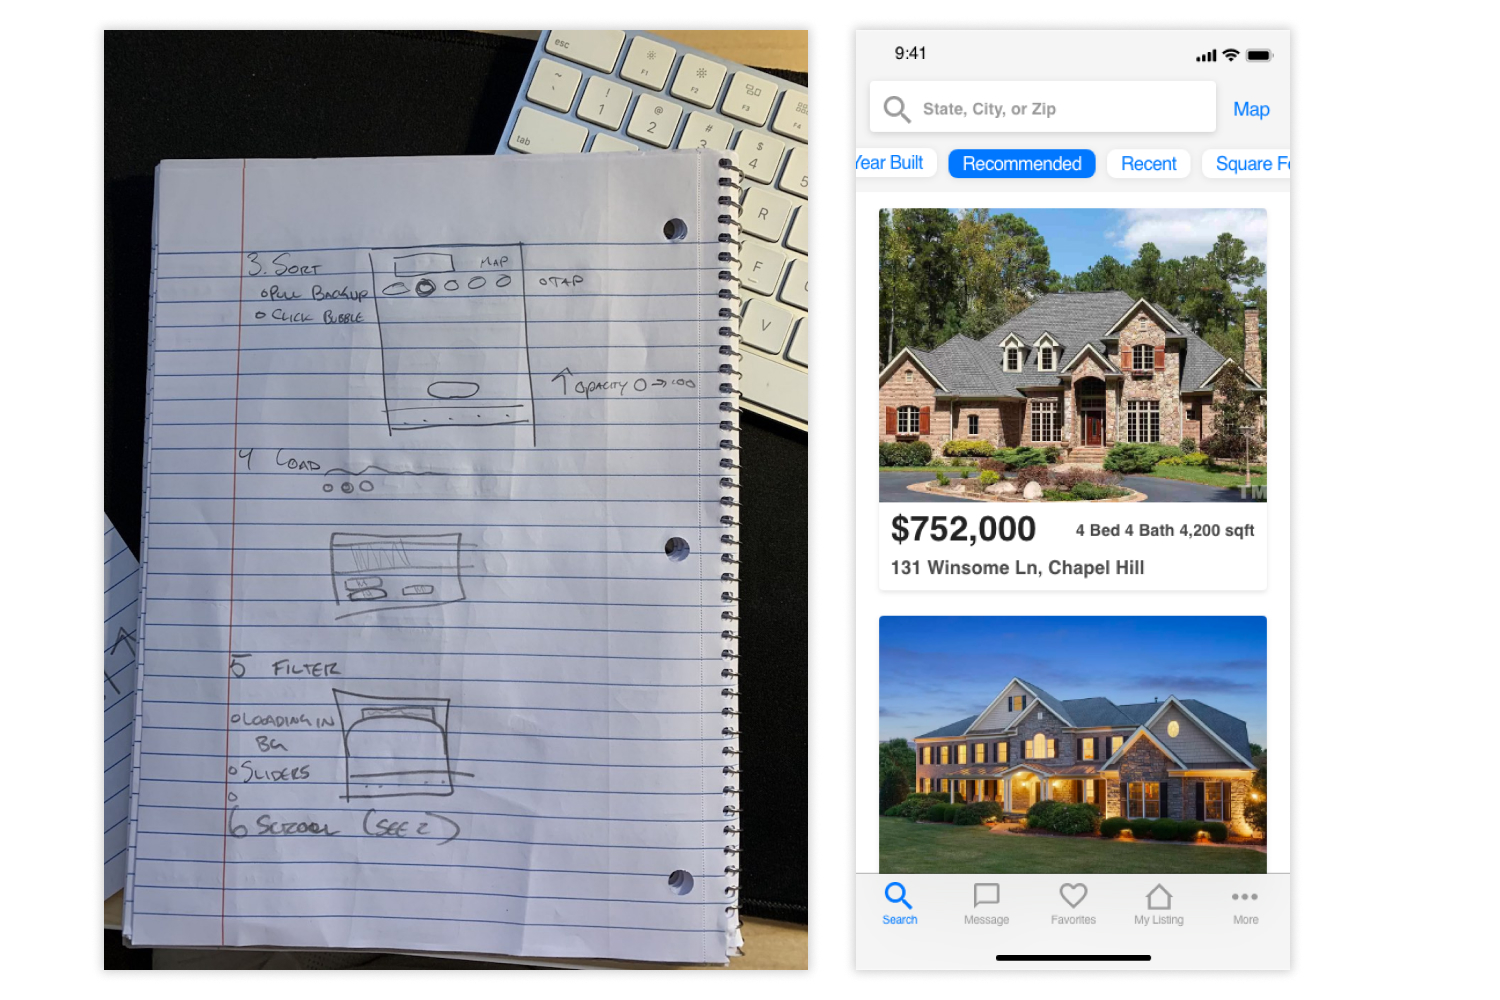 esc
F1
F2
F3
F4
~
!
1
@
2
#
3
$
4
5
tab
R
F
V
3. SORT
MAP
o PULL BACKUP
o TAP
o CLICK BUBBLE
↑ OPACITY 0 → 100
4 LOAD
5 FILTER
o LOADING IN
BG
o SLIDERS
6 SCROOL (SEE 2)
9:41
State, City, or Zip
Map
Year Built
Recommended
Recent
Square Fe
TM
$752,000
4 Bed 4 Bath 4,200 sqft
131 Winsome Ln, Chapel Hill
Search
Message
Favorites
My Listing
More